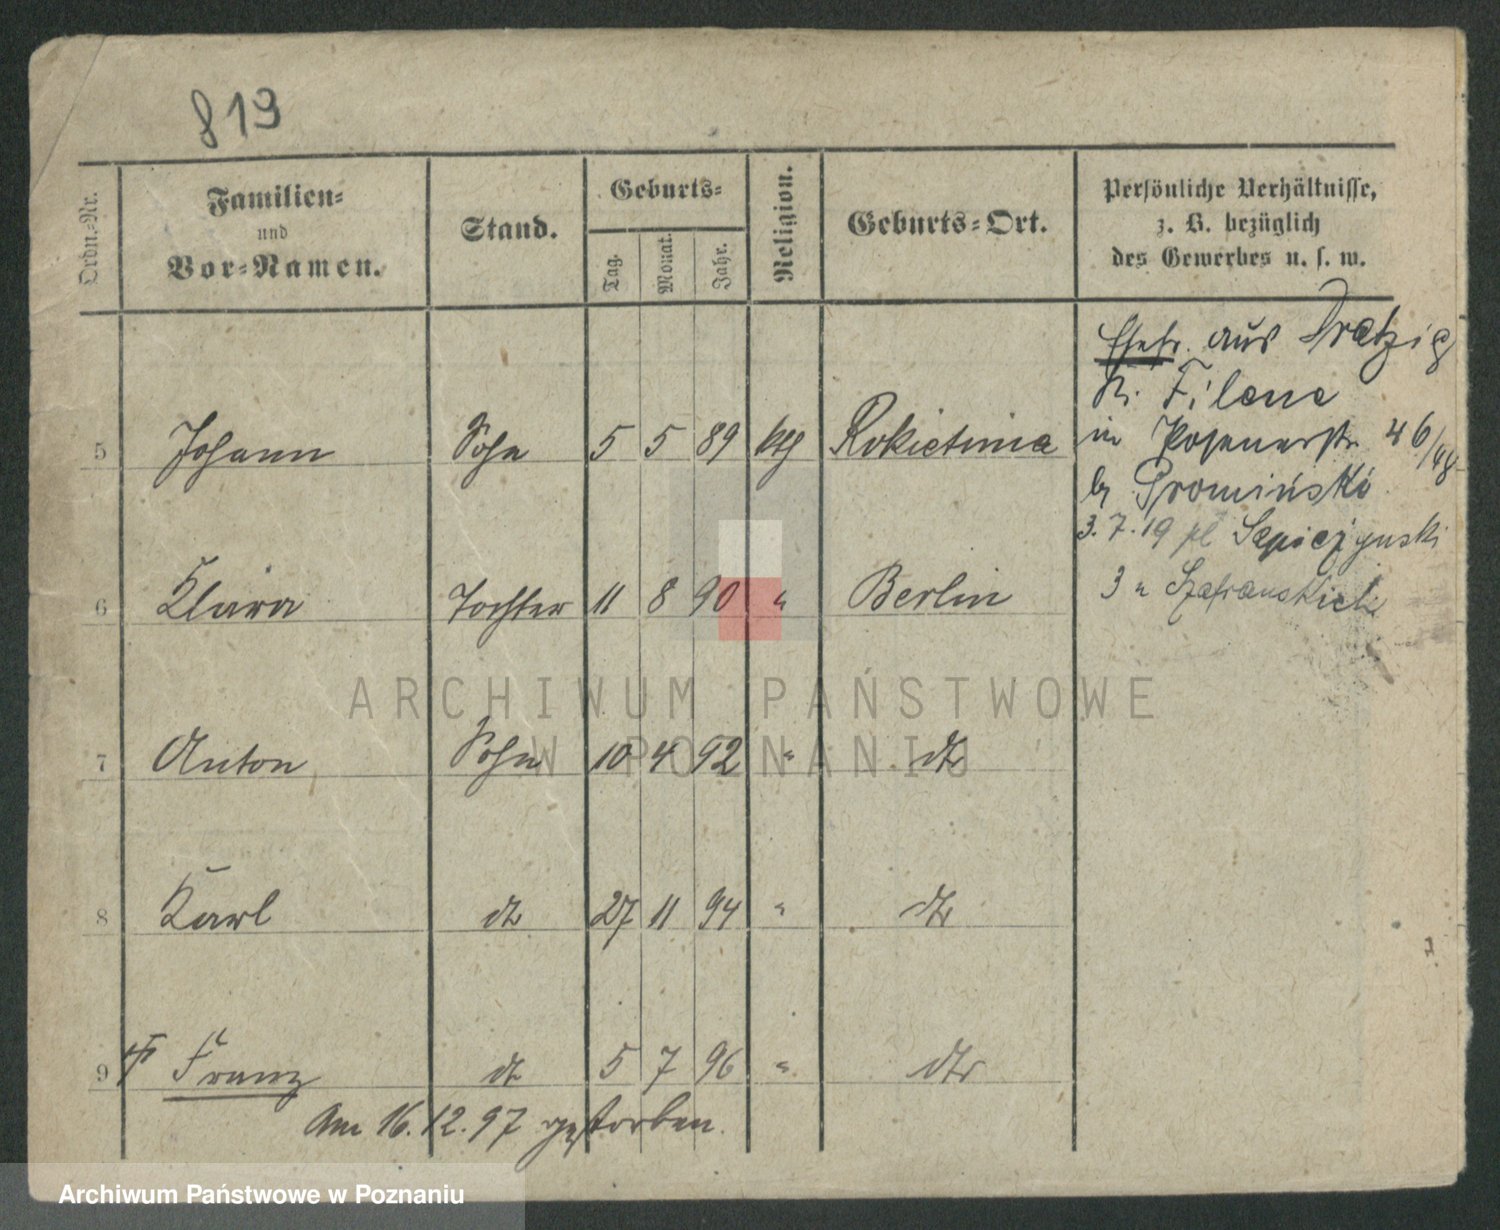 819
Ordn.-Nr.
Familien-
und
Vor-Namen.
Stand.
Geburts-
Tag.
Monat.
Jahr.
Religion.
Geburts-Ort.
Persönliche Verhältnisse,
z. B. bezüglich
des Gewerbes u. s. w.
Ehefr. aus Dratzig
Kr. Filene
in Posenerstr 46/48
by Promiński
3. 7. 19 pl
3 "
5 Johann Sohn 5 5 89 kth Rokietnica
6 Klara Tochter 11 8 90 " Berlin
7 Anton Sohn 10 4 92 " dto
8 Karl dto 27 11 94 " dto
9 † Franz dto 5 7 96 " dto
Am 16.12.97 gestorben.
ARCHIWUM PAŃSTWOWE
W POZNANIU
Archiwum Państwowe w Poznaniu